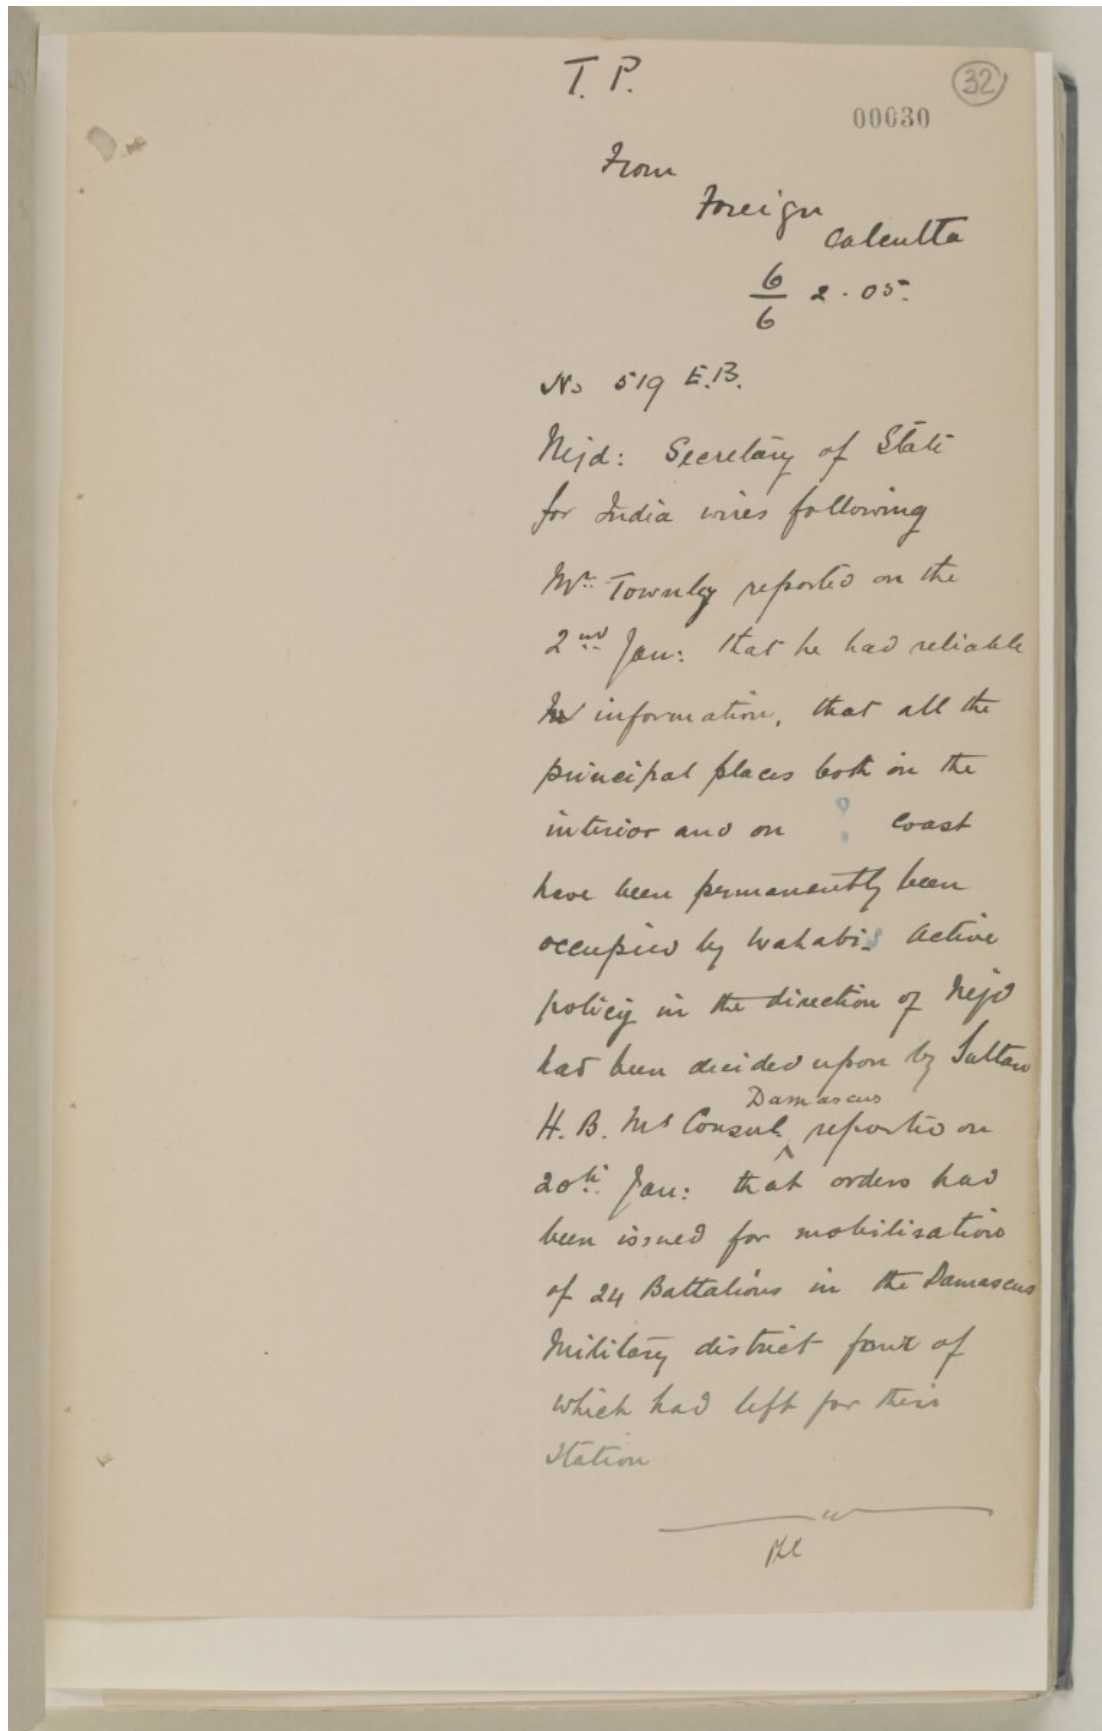 T. P.
32
00030
From
Foreign
Calcutta
6/6 2.05.
No 519 E.B.
Nejd: Secretary of State
for India wires following
Mr. Townley reported on the
2nd Jan: that he had reliable
information, that all the
principal places both in the
interior and on ? coast
have been permanently been
occupied by Wahabis Active
policy in the direction of Nejd
had been decided upon by Sultan
Damascus
H. B. Ms Consul ^ reported on
20th Jan: that orders had
been issued for mobilisation
of 24 Battalions in the Damascus
Military district four of
which had left for their
Station